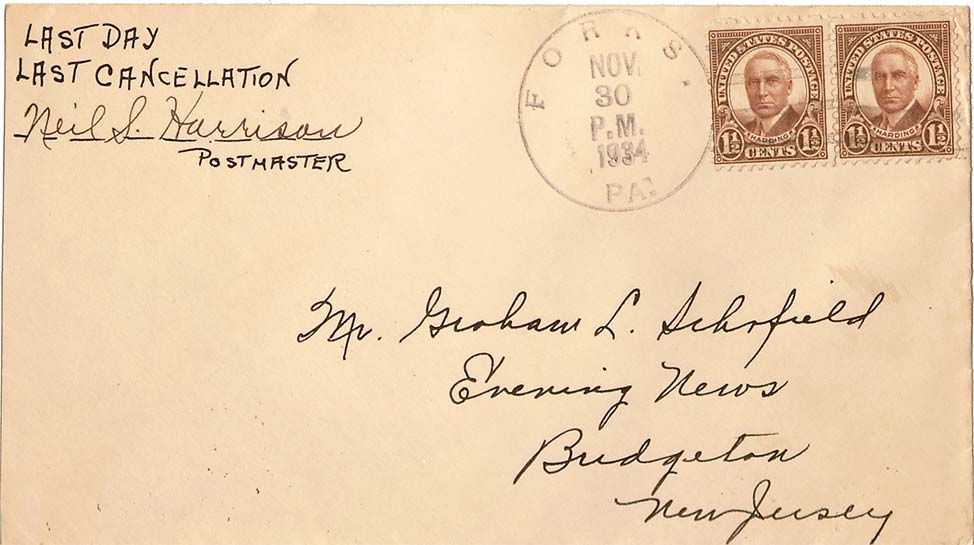 LAST DAY
LAST CANCELLATION
Neil S. Harrison
POSTMASTER
FORKS.
NOV.
30
P.M.
1934
PA.
UNITED STATES POSTAGE
HARDING
1½ CENTS 1½
UNITED STATES POSTAGE
HARDING
1½ CENTS 1½
Mr. Graham L. Schofield
Evening News
Bridgeton
New Jersey